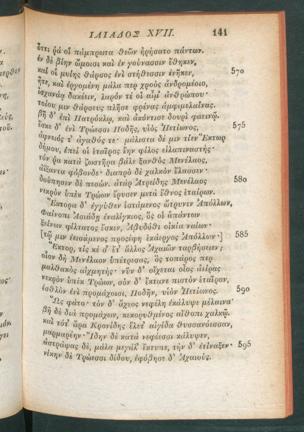 ΙΛΙΑΔΟΣ XVII. 141
ὅττι ῥά οἱ πάμπρωτα θεῶν ἠρήσατο πάντων.
ἐν δὲ βίην ὤμοισι καὶ ἐν γούνασσιν ἔθηκεν,
καί οἱ μυίης θάρσος ἐνὶ στήθεσσιν ἐνῆκεν, 570
ἥτε, καὶ ἐργομένη μάλα περ χροὸς ἀνδρομέοιο,
ἰσχανάᾳ δακέειν, λαρόν τέ οἱ αἷμ' ἀνθρώπου·
τοίου μιν θάρσευς πλῆσε φρένας ἀμφιμελαίνας.
βῆ δ' ἐπὶ Πατρόκλῳ, καὶ ἀκόντισε δουρὶ φαεινῷ.
ἔσκε δ' ἐνὶ Τρώεσσι Ποδῆς, υἱὸς Ἠετίωνος, 575
ἀφνειός τ' ἀγαθός τε· μάλιστα δέ μιν τίεν Ἕκτωρ
δήμου, ἐπεί οἱ ἑταῖρος ἔην φίλος εἰλαπιναστής·
τόν ῥα κατὰ ζωστῆρα βάλε ξανθὸς Μενέλαος,
ἀΐξαντα φόβονδε· διαπρὸ δὲ χαλκὸν ἔλασσεν·
δούπησεν δὲ πεσών. ἀτὰρ Ἀτρείδης Μενέλαος 580
νεκρὸν ὑπὲκ Τρώων ἔρυσεν μετὰ ἔθνος ἑταίρων.
Ἕκτορα δ' ἐγγύθεν ἱστάμενος ὤτρυνεν Ἀπόλλων,
Φαίνοπι Ἀσιάδῃ ἐναλίγκιος, ὅς οἱ ἁπάντων
ξείνων φίλτατος ἔσκεν, Ἀβυδόθι οἰκία ναίων·
[τῷ μιν ἐεισάμενος προσέφη ἑκάεργος Ἀπόλλων·] 585
Ἕκτορ, τίς κέ σ' ἔτ' ἄλλος Ἀχαιῶν ταρβήσειεν;
οἷον δὴ Μενέλαον ὑπέτρεσας, ὃς τοπάρος περ
μαλθακὸς αἰχμητής· νῦν δ' οἴχεται οἶος ἀείρας
νεκρὸν ὑπὲκ Τρώων, σὸν δ' ἔκτανε πιστὸν ἑταῖρον,
ἐσθλὸν ἐνὶ προμάχοισι, Ποδῆν, υἱὸν Ἠετίωνος. 590
Ὣς φάτο· τὸν δ' ἄχεος νεφέλη ἐκάλυψε μέλαινα·
βῆ δὲ διὰ προμάχων, κεκορυθμένος αἴθοπι χαλκῷ.
καὶ τότ' ἄρα Κρονίδης ἕλετ' αἰγίδα θυσσανόεσσαν,
μαρμαρέην· Ἴδην δὲ κατὰ νεφέεσσι κάλυψεν,
ἀστράψας δέ, μάλα μεγάλ' ἔκτυπε, τὴν δ' ἐτίναξεν· 595
νίκην δὲ Τρώεσσι δίδου, ἐφόβησε δ' Ἀχαιούς.